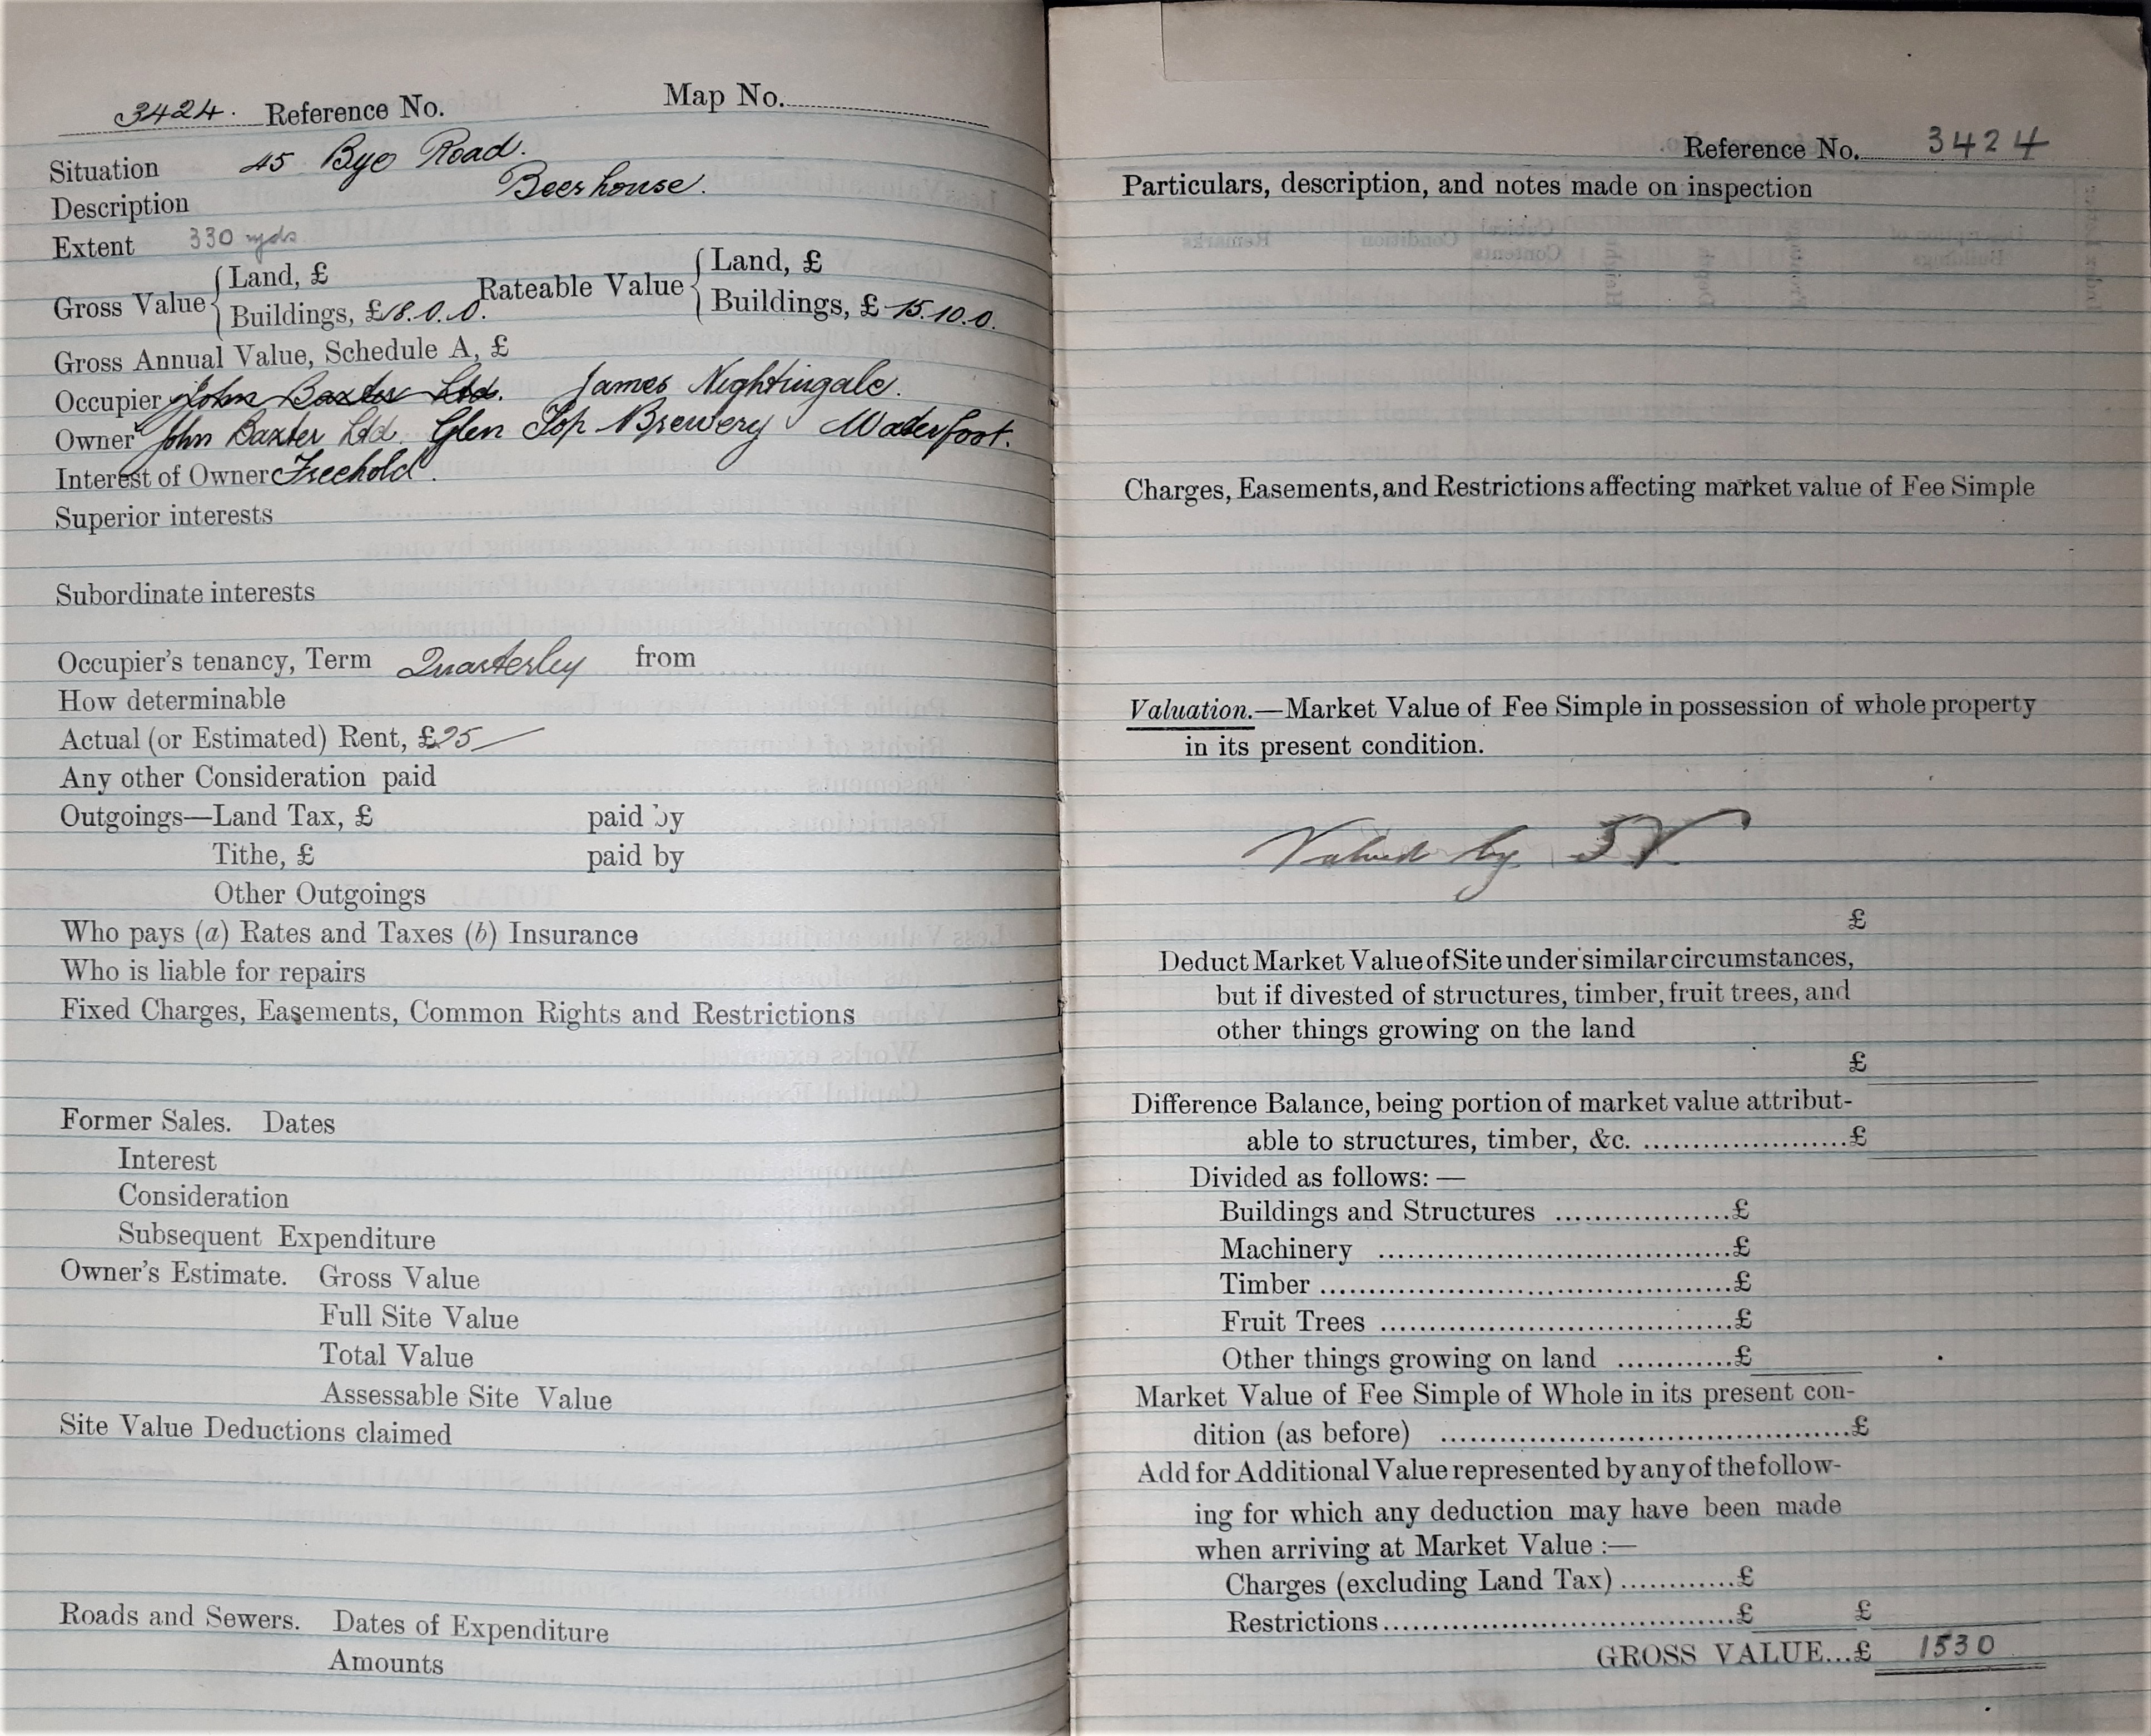 3424. Reference No. Map No.
Situation 45 Bye Road.
Description Beerhouse.
Extent 330 yds
Gross Value { Land, £
Buildings, £18.0.0. Rateable Value { Land, £
Buildings, £ 15.10.0.
Gross Annual Value, Schedule A, £
Occupier John Baxter Ltd. James Nightingale.
Owner John Baxter Ltd. Glen Top Brewery Waterfoot.
Interest of Owner Freehold.
Superior interests
Subordinate interests
Occupier's tenancy, Term Quarterley from
How determinable
Actual (or Estimated) Rent, £25
Any other Consideration paid
Outgoings—Land Tax, £ paid by
Tithe, £ paid by
Other Outgoings
Who pays (a) Rates and Taxes (b) Insurance
Who is liable for repairs
Fixed Charges, Easements, Common Rights and Restrictions
Former Sales. Dates
Interest
Consideration
Subsequent Expenditure
Owner's Estimate. Gross Value
Full Site Value
Total Value
Assessable Site Value
Site Value Deductions claimed
Roads and Sewers. Dates of Expenditure
Amounts
Reference No. 3424
Particulars, description, and notes made on inspection
Charges, Easements, and Restrictions affecting market value of Fee Simple
Valuation.—Market Value of Fee Simple in possession of whole property
in its present condition.
Valued by
£
Deduct Market Value of Site under similar circumstances,
but if divested of structures, timber, fruit trees, and
other things growing on the land
£
Difference Balance, being portion of market value attribut-
able to structures, timber, &c. .....................£
Divided as follows:—
Buildings and Structures ..................£
Machinery ....................................£
Timber ..........................................£
Fruit Trees ....................................£
Other things growing on land ............£
Market Value of Fee Simple of Whole in its present con-
dition (as before) ..........................................£
Add for Additional Value represented by any of the follow-
ing for which any deduction may have been made
when arriving at Market Value :—
Charges (excluding Land Tax) ............£
Restrictions....................................£ £
GROSS VALUE...£ 1530